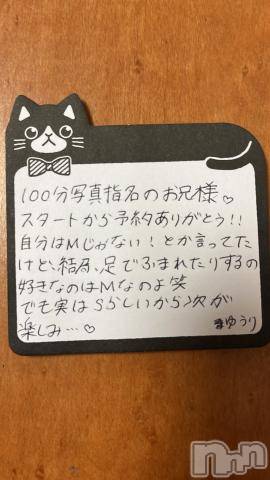 100分写真指名のお兄様♡
スタートから予約ありがとう!!
自分はMじゃない!とか言ってた
けど、結局、足でふまれたりするの
好きなのはMなのよ笑
でも実はSらしいから次が
楽しみ…♡
まゆうり